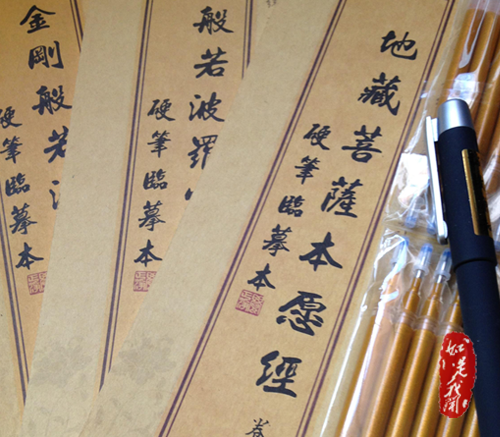 地藏菩薩本愿經
硬筆臨摹本
般若波羅
硬筆臨摹本
金剛般若波
硬筆臨摹本
如是我聞